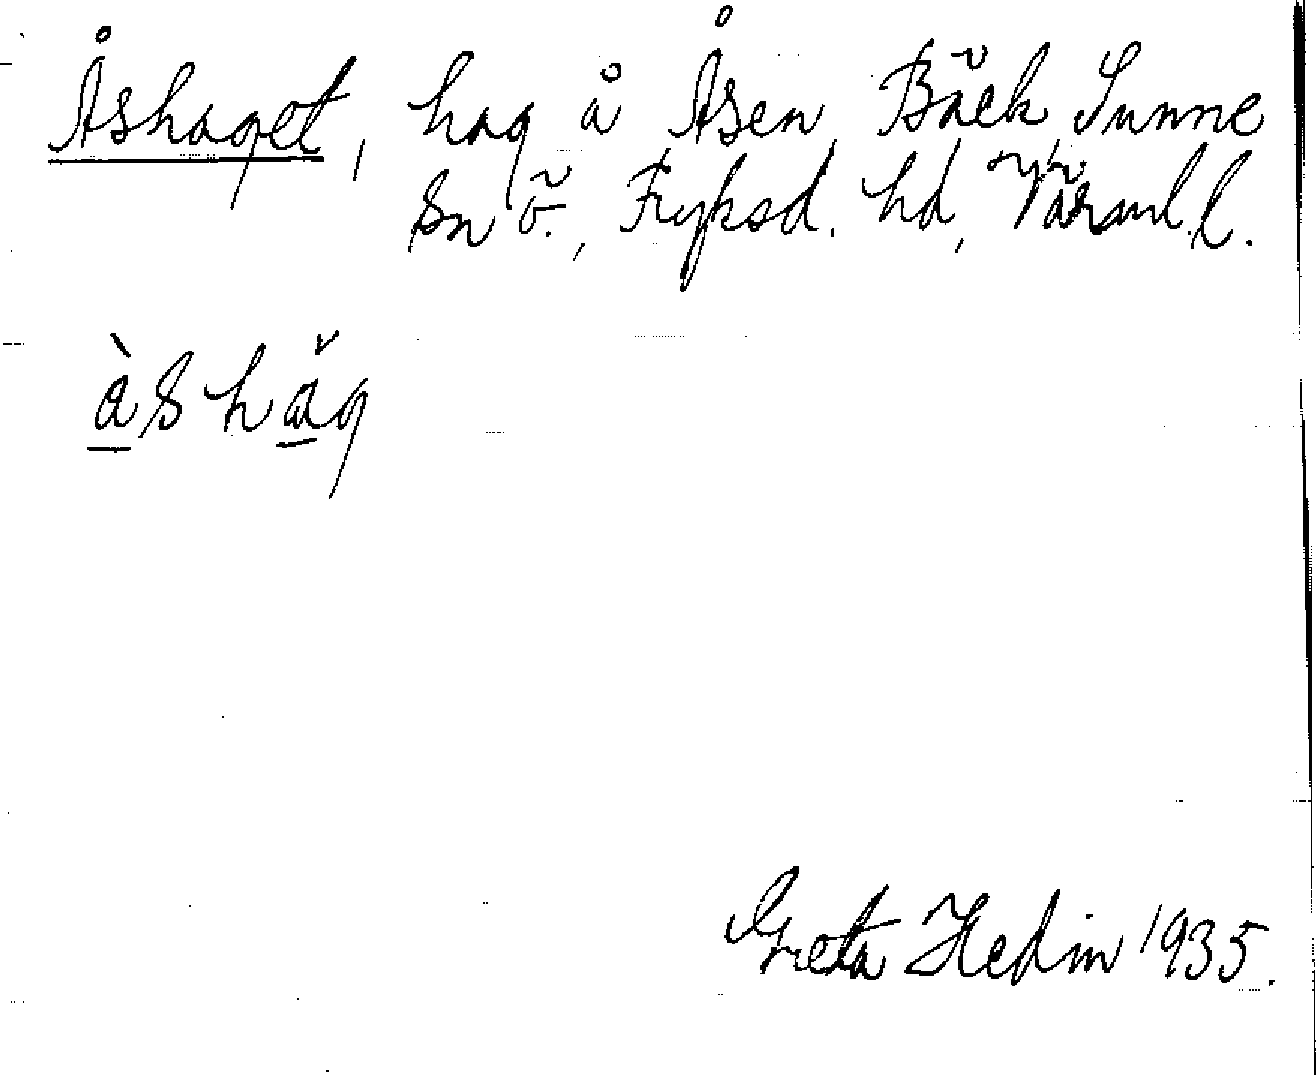 Åshaget, hag å Åsen, Bäck, Sunne
sn ö., Fryksd. hd, Värml. l.
à s h ă g
Greta Hedin 1935.